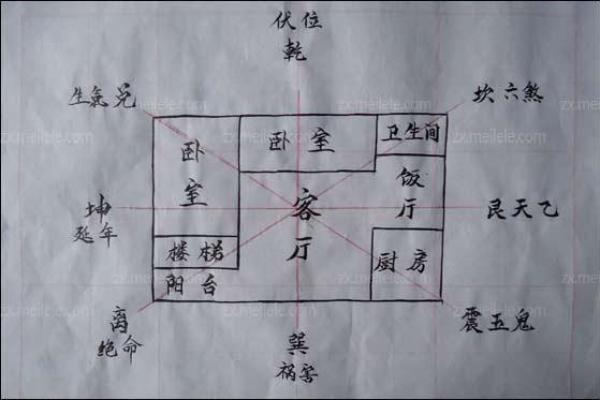 伏位
乾
生氣兑
坎六煞
zx.meilele.com
卧室
卧室
卫生间
坤
延年
客厅
饭厅
艮天乙
楼梯
阳台
厨房
离
绝命
巽
祸害
震五鬼
zx.meilele.com